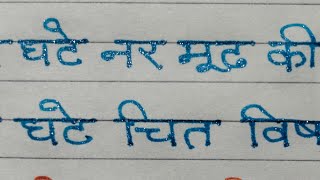 घटे नर मूढ की
घटे चित विष